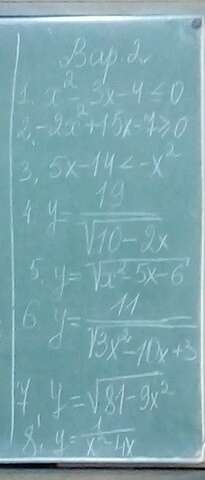 Вар. 2
1. x² - 3x - 4 ≤ 0
2. -2x² + 15x - 7 ≥ 0
3. 5x - 14 < -x²
4. y = 19 / √(10 - 2x)
5. y = √(x² - 5x - 6)
6. y = 11 / √(3x² - 10x + 3)
7. y = √(81 - 9x²)
8. y = 1 / (x² - 4x)